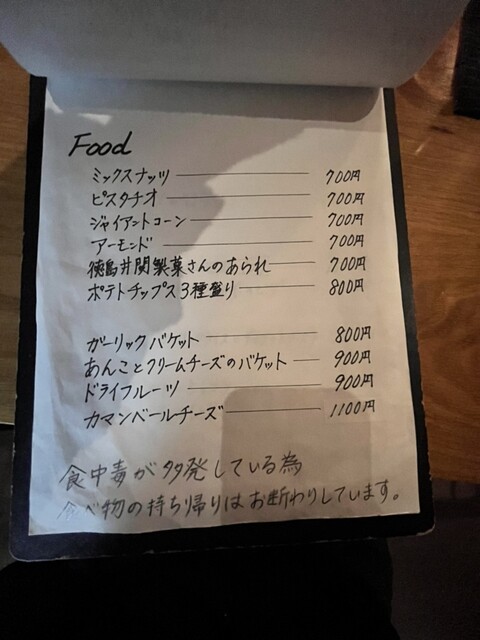 Food
ミックスナッツ 700円
ピスタチオ 700円
ジャイアントコーン 700円
アーモンド 700円
徳島井関製菓さんのあられ 700円
ポテトチップス3種盛り 800円
ガーリックバケット 800円
あんことクリームチーズのバケット 900円
ドライフルーツ 900円
カマンベールチーズ 1100円
食中毒が多発している為
食べ物の持ち帰りはお断わりしています。